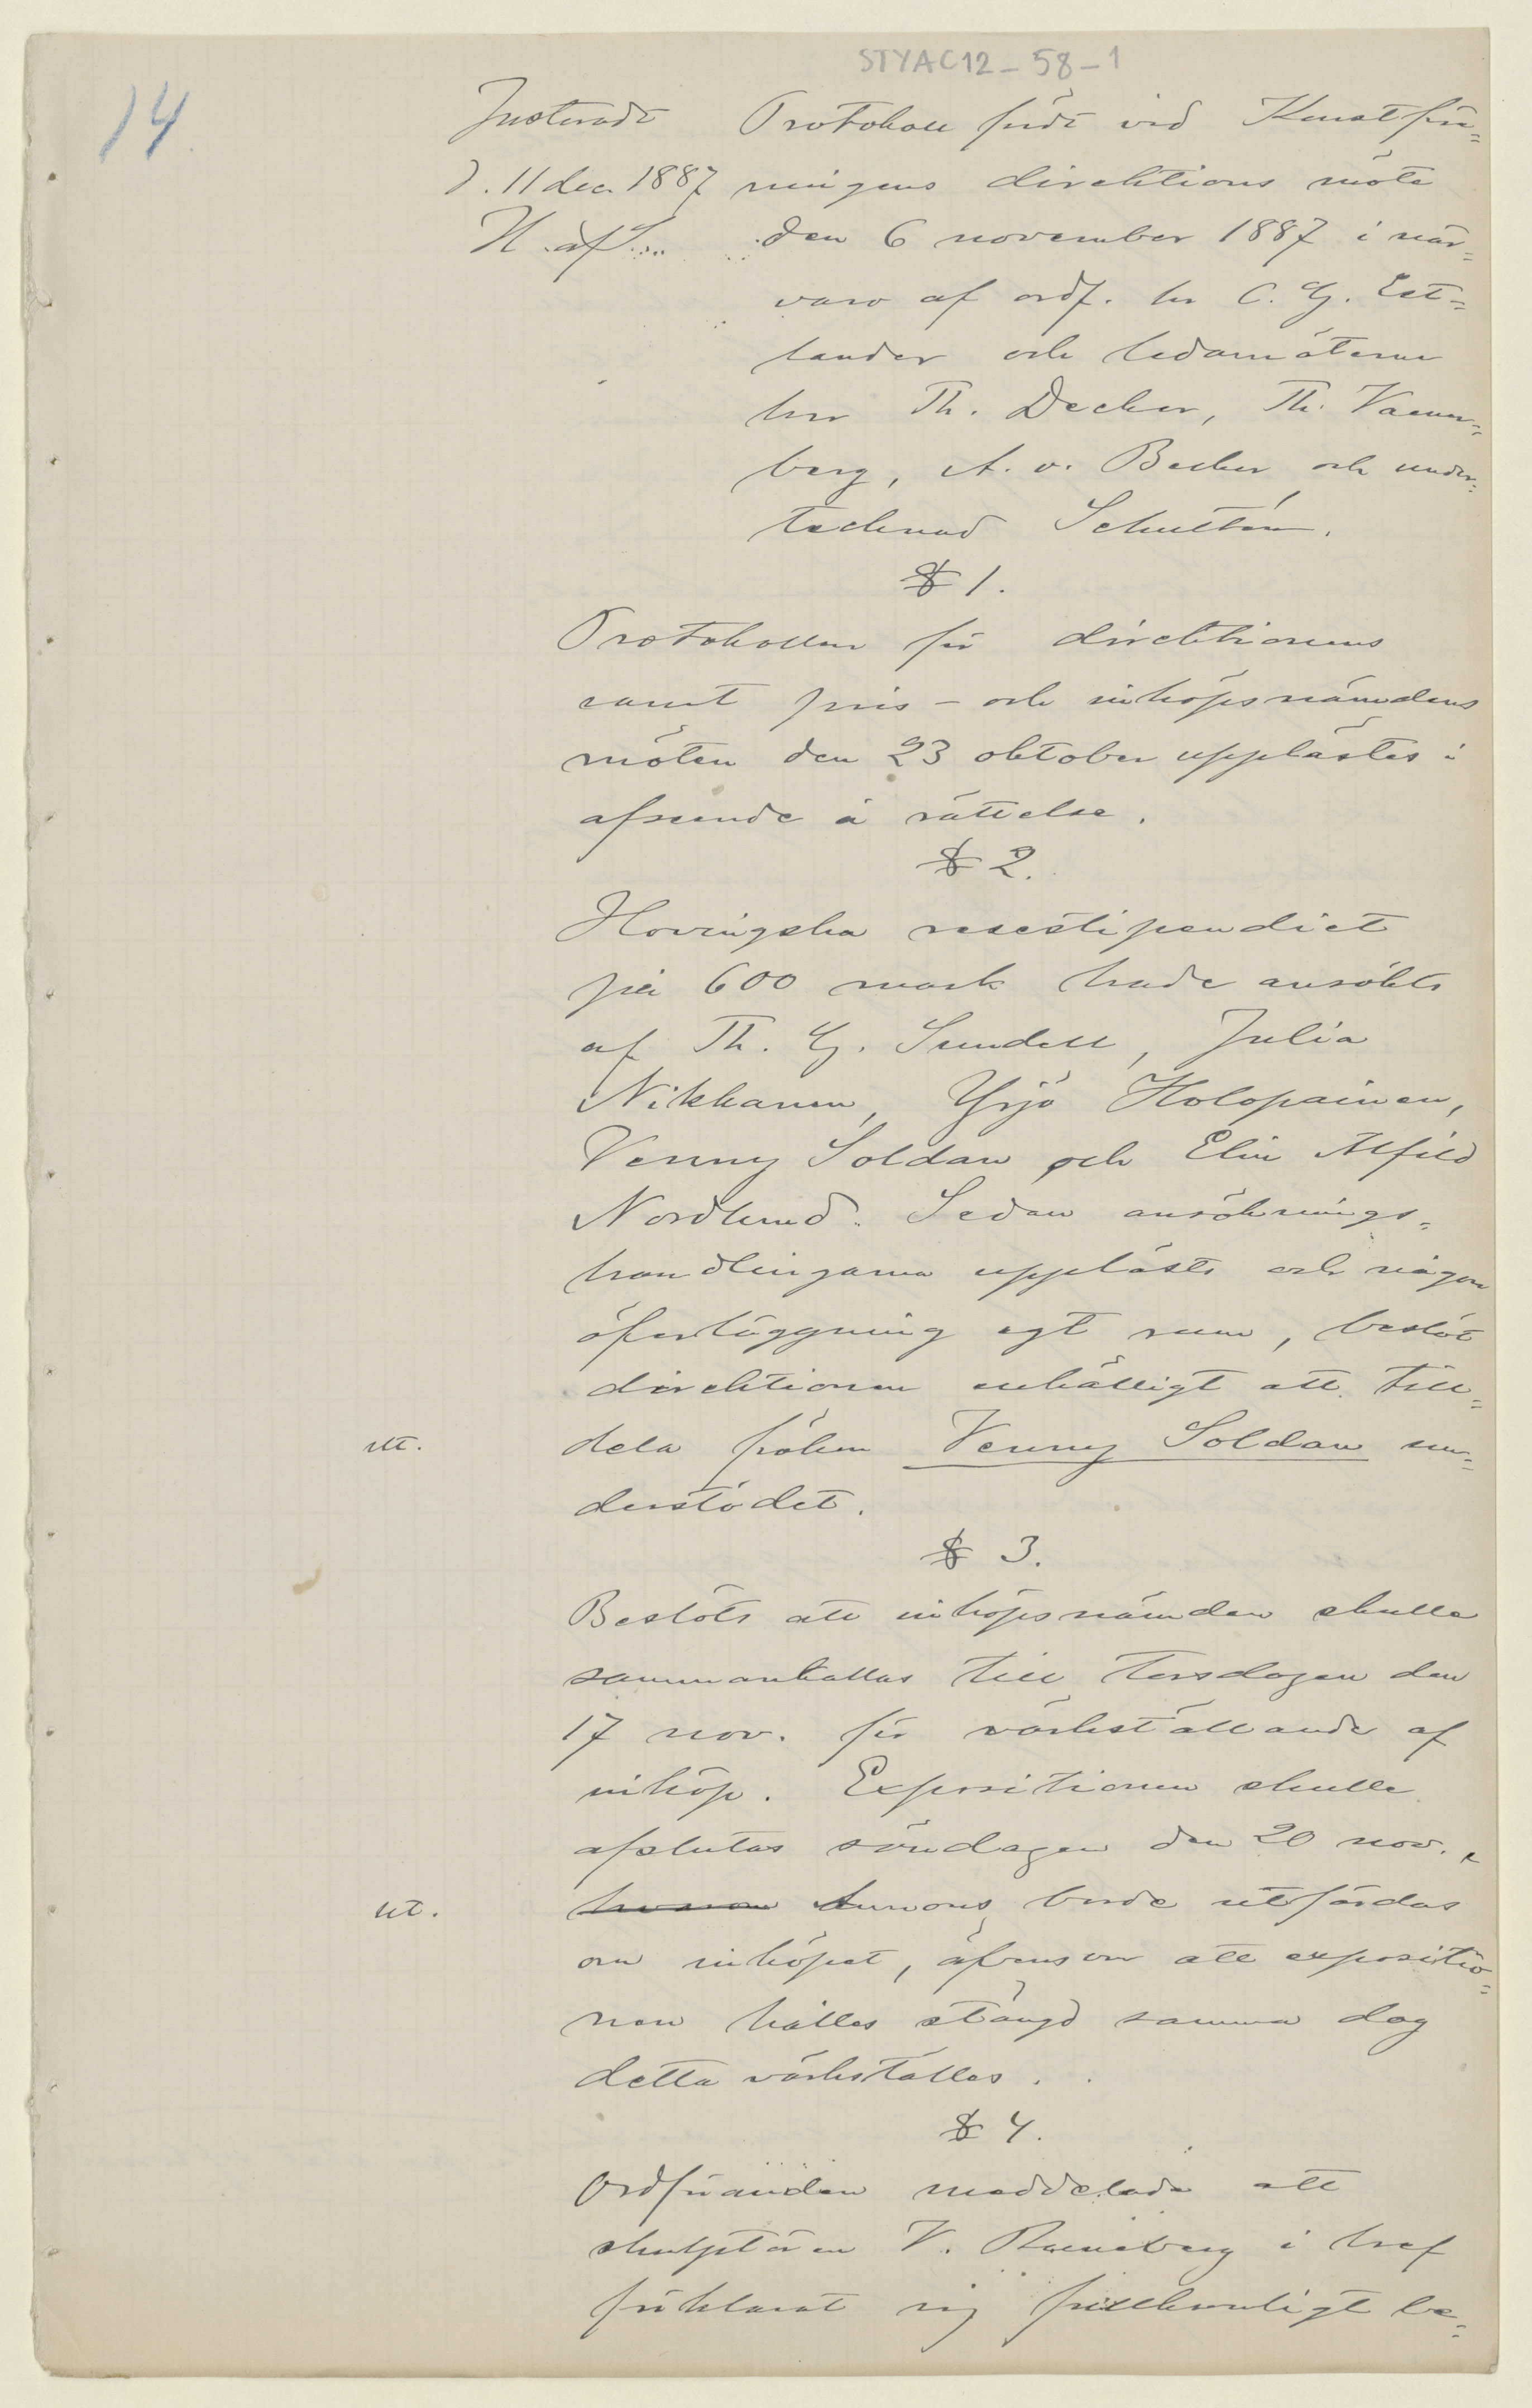 STYAC12-58-1
14
Justeradt
d. 11 dec. 1887
Protokoll fördt vid Konstföre=
ningens direktions möte
den 6 november 1887 i när=
varo af ordf. hr C. G. Est=
lander och ledamöterna
hrr Th. Decker, Th. Waen=
berg, A. v. Becker och under=
tecknad Schultén.
§ 1.
Protokollen för direktionens
samt pris- och inköpsnämdens
möten den 23 oktober upplästes i
afseende å rättelse.
§ 2.
Hovingska resestipendiet
på 600 mark hade ansökts
af Th. G. Sundell, Julia
Nikkanen, Yrjö Holopainen,
Venny Soldan och Elin Alfild
Nordlund. Sedan ansöknings=
handlingarna upplästs och någon
öfverläggning egt rum, beslöt
direktionen enhälligt att till=
dela fröken Venny Soldan un=
derstödet.
§ 3.
Beslöts att inköpsnämden skulle
sammankallas till torsdagen den
17 nov. för värkställande af
inköp. Expositionen skulle
afslutas söndagen den 20 nov.
ut. Annons borde utfärdas
om inköpet, äfvensom att expositio=
nen hålles stängd samma dag
detta värkställes.
§ 4.
Ordföranden meddelade att
skulptören W. Runeberg i bref
förklarat sig fullkomligt be=